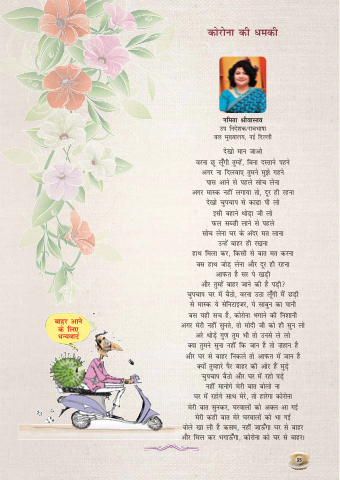 कोरोना की धमकी
नमिता श्रीवास्तव
उप निदेशक/राजभाषा
बल मुख्यालय, नई दिल्ली
देखो मान जाओ
वरना छू लूँगी तुम्हें, बिना दस्ताने पहने
अगर ना दिलवाए तुमने मुझे गहने
पास आने से पहले सोच लेना
अगर मास्क नहीं लगाया तो, दूर ही रहना
देखो चुपचाप से काढ़ा पी लो
इसी बहाने थोड़ा जी लो
फल सब्जी लाने से पहले
सोच लेना घर के अंदर मत लाना
उन्हें बाहर ही रखना
हाथ मिला कर, किसी से बात मत करना
बस हाथ जोड़ लेना और दूर ही रहना
आफत है सर पे खड़ी
और तुम्हें बाहर जाने की है पड़ी?
चुपचाप घर में बैठो, वरना उठा लूँगी मैं छड़ी
से मास्क ये सेनिटाइजर, ये साबुन का पानी
बस यही सच है, कोरोना भगाने की निशानी
अगर मेरी नहीं सुनते, तो मोदी जी को ही सुन लो
अरे थोड़े गुण तुम भी तो उनसे ले लो
क्या तुमने सुना नहीं कि जान है तो जहान है
और घर से बाहर निकले तो आफत में जान है
क्यों तुम्हारे पैर बाहर की ओर हैं मुड़े
चुपचाप बैठो और घर में रहो पड़े
नहीं मानोगे मेरी बात बोलो ना
घर में रहोगे साथ मेरे, तो हारेगा कोरोना
मेरी बात सुनकर, घरवालों को अक्ल आ गई
मेरी कही बात मेरे घरवालों को भा गई
बोले खा ली है कसम, नहीं जाऊँगा घर से बाहर
और मिल कर भगाऊँगा, कोरोना को घर से बाहर।
बाहर आने
के लिए
धन्यवाद